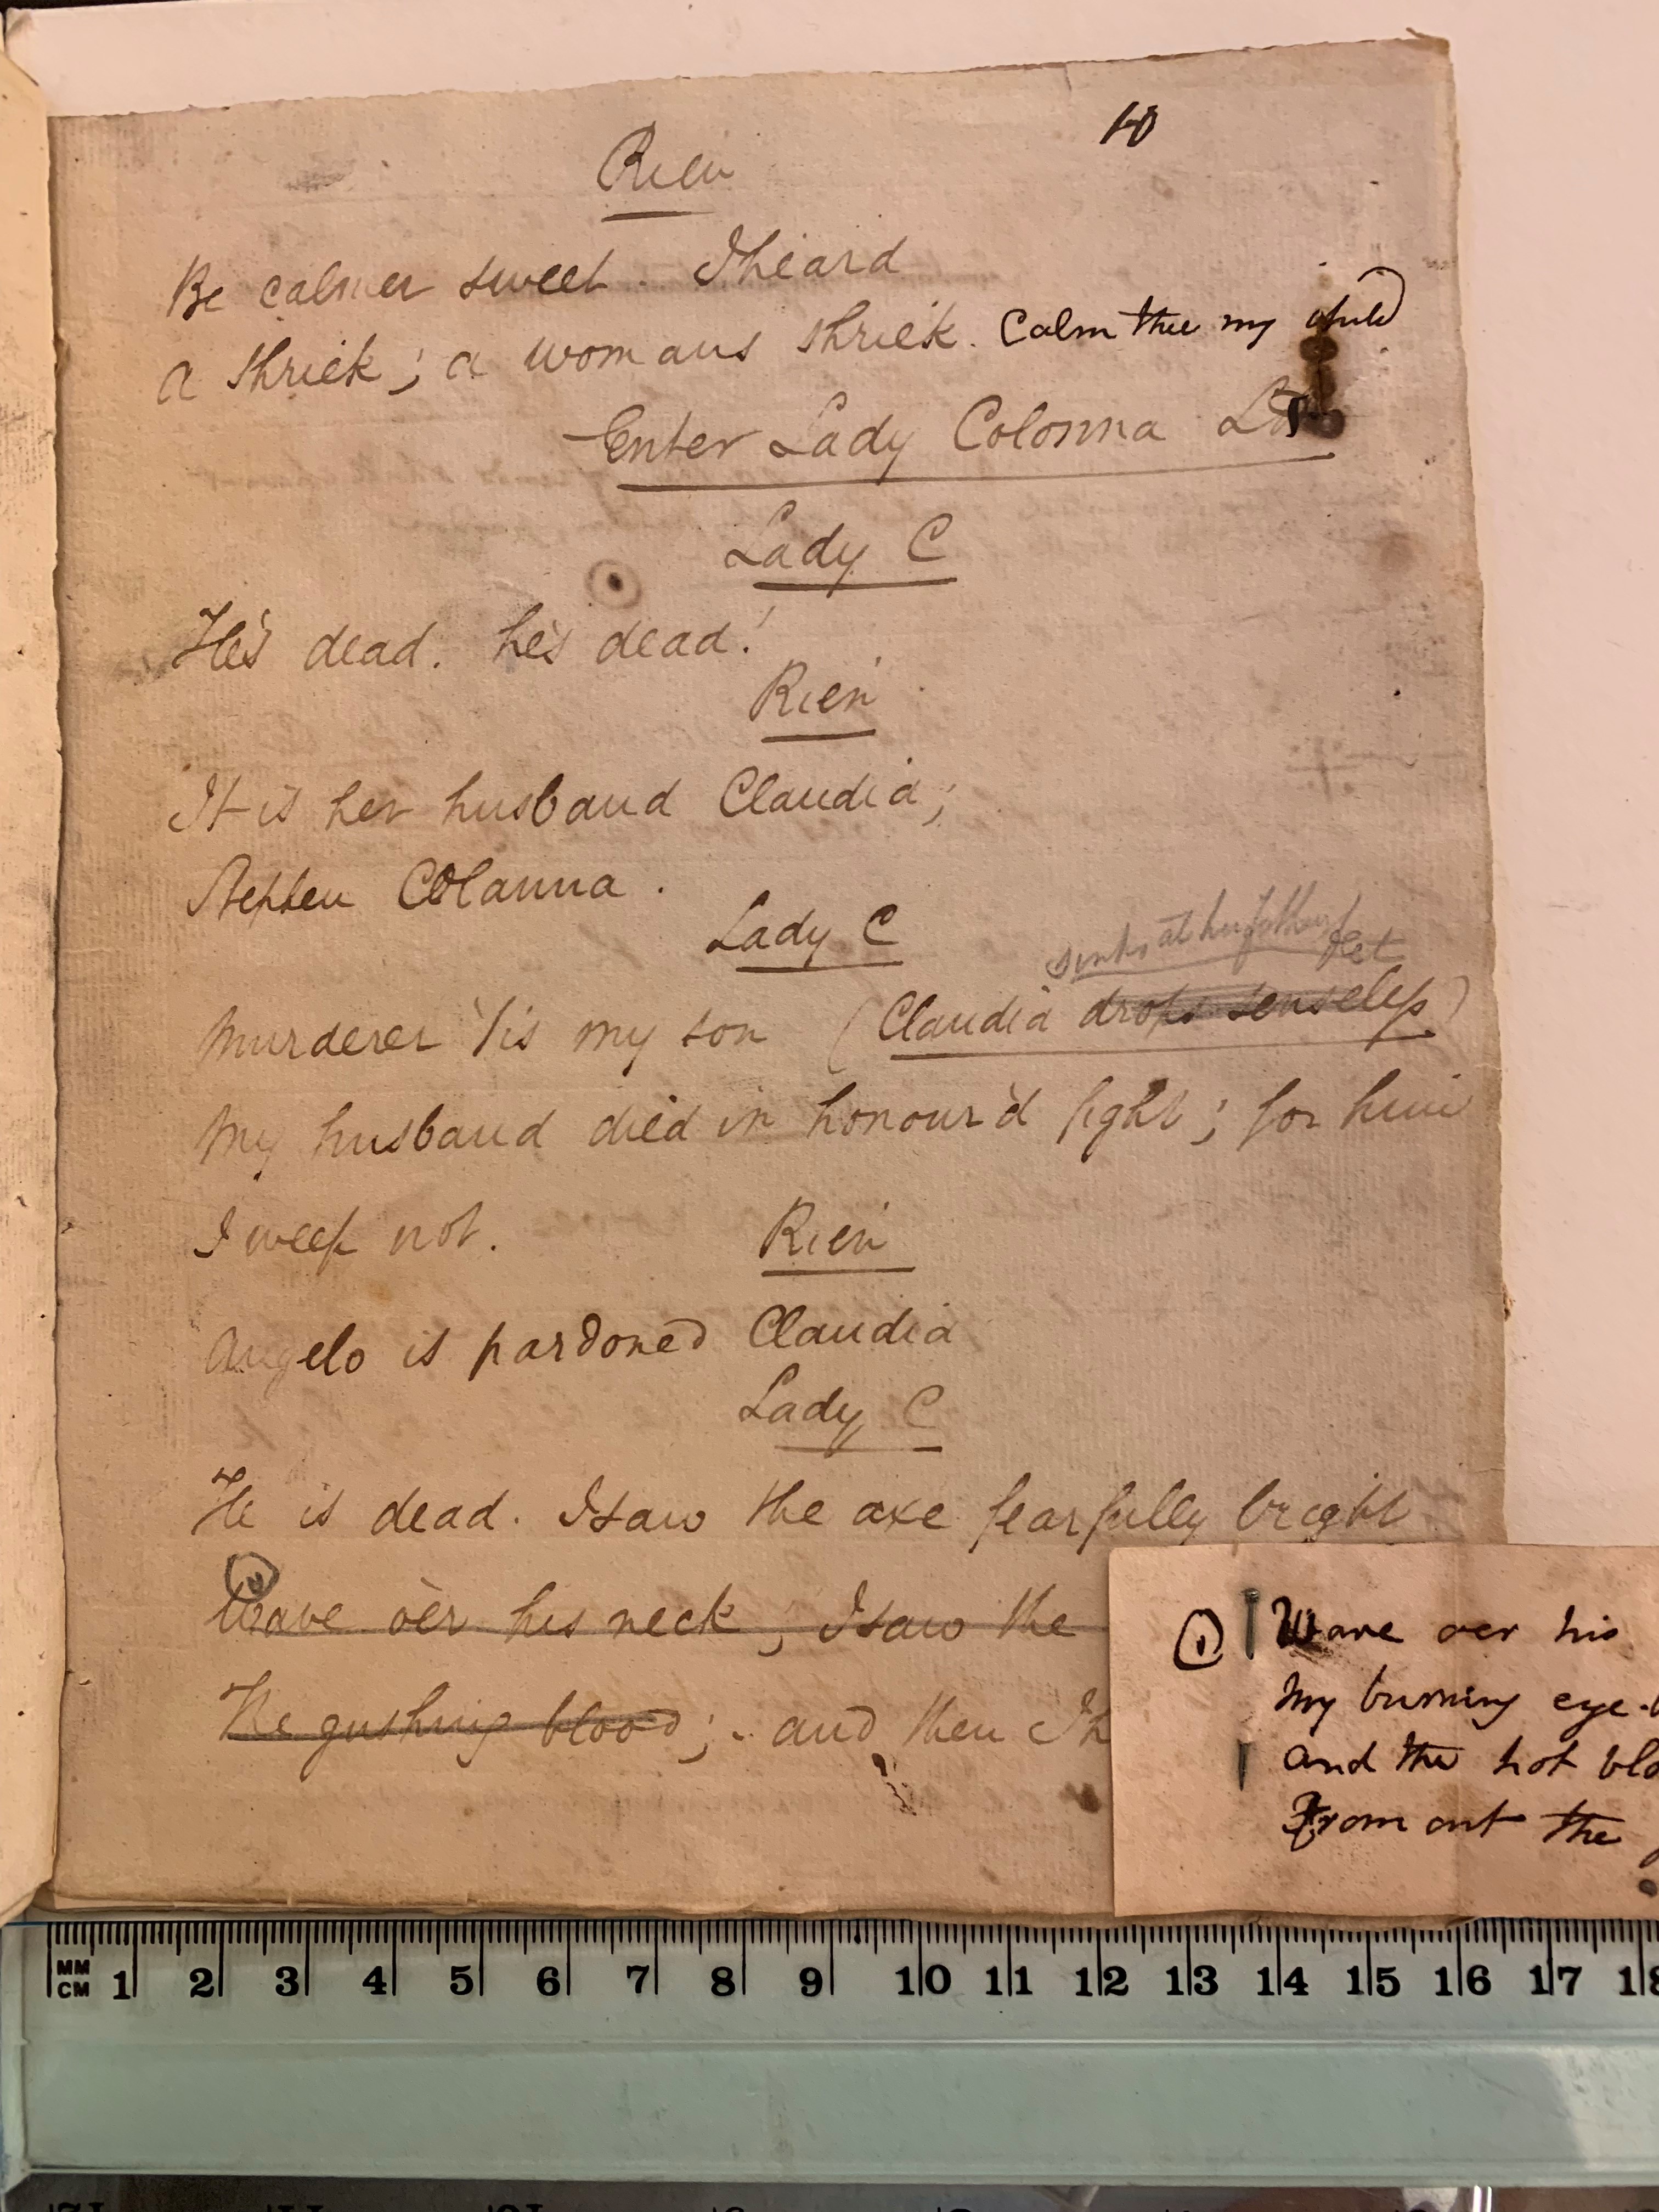 10
Rien
Be calmer sweet. I heard
a shriek; a womans shriek. Calm thee my child
Enter Lady Colonna
Lady C
He's dead. he's dead!
Rien
It is her husband Claudia;
Stephen Colanna.
Lady C
sinks at her father's feet
Murderer 'tis my son (Claudia drops senseless)
My husband died in honour'd fight; for him
I weep not.
Rien
Angelo is pardoned Claudia
Lady C
He is dead. I saw the axe fearfully bright
Wave o'er his neck; I saw the
The gushing blood; and then I h
① Wave oer his
My burning eye-b
And the hot blo
From out the
MM
CM 1 2 3 4 5 6 7 8 9 10 11 12 13 14 15 16 17 18